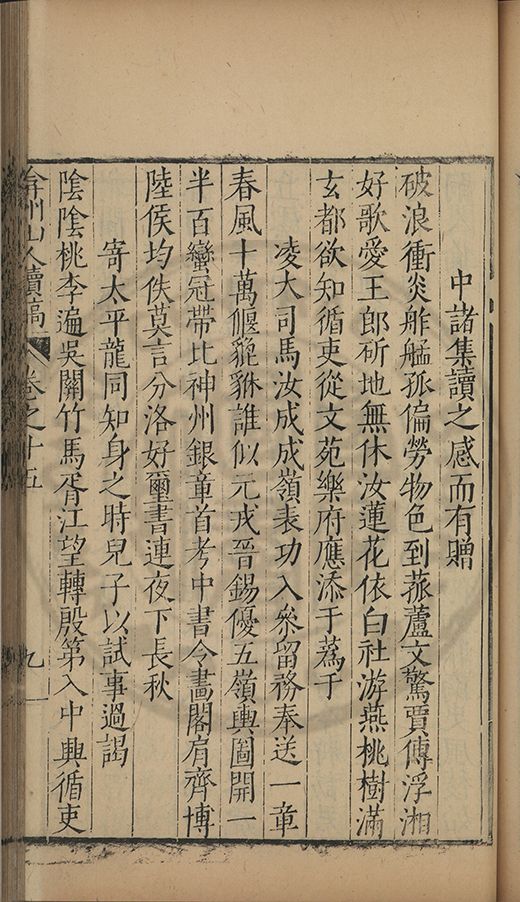 中諸集讀之感而有贈
破浪衝炎舴艋孤偏勞物色到菰蘆文驚賈傅浮湘
好歌愛王郎斫地無休汝蓮花依白社游燕桃樹滿
玄都欲知循吏從文苑樂府應添于蒍于
凌大司馬汝成成嶺表功入叅留務奉送一章
春風十萬偃貔貅誰似元戎晉錫優五嶺輿圖開一
半百蠻冠帶比神州銀章首考中書令畵閣肩齊博
陸侯均佚莫言分洛好璽書連夜下長秋
寄太平龍同知身之時兒子以試事過謁
陰陰桃李遍吳關竹馬胥江望轉殷第入中興循吏
弇州山人續稿 卷之十五 九